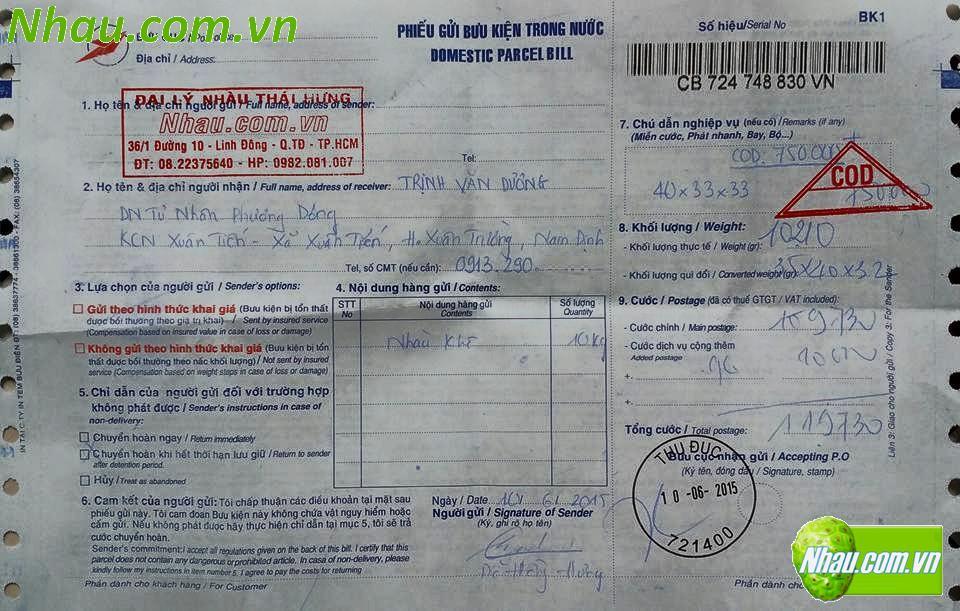 Nhau.com.vn
Địa chỉ / Address:
PHIẾU GỬI BƯU KIỆN TRONG NƯỚC
DOMESTIC PARCEL BILL
BK1
Số hiệu/Serial No
CB 724 748 830 VN
1. Họ tên & địa chỉ người gửi / Full name, address of sender:
ĐẠI LÝ NHÀU THÁI HƯNG
Nhau.com.vn
36/1 Đường 10 - Linh Đông - Q.TĐ - TP.HCM
ĐT: 08.22375640 - HP: 0982.081.007
Tel:
2. Họ tên & địa chỉ người nhận / Full name, address of receiver: TRỊNH VĂN DƯƠNG
DN Tư Nhân Phương Đông
KCN Xuân Tiến - Xã Xuân Tiến, H. Xuân Trường, Nam Định
Tel, số CMT (nếu cần): 0913.290
3. Lựa chọn của người gửi / Sender's options:
Gửi theo hình thức khai giá (Bưu kiện bị tổn thất
được bồi thường theo giá trị khai) / Sent by insured service
(Compensation based on insured value in case of loss or damage)
Không gửi theo hình thức khai giá (Bưu kiện bị tổn
thất được bồi thường theo nấc khối lượng) / Not sent by insured
service (Compensation based on weight steps in case of loss or damage)
4. Nội dung hàng gửi / Contents:
STT
No
Nội dung hàng gửi
Contents
Số lượng
Quantity
Nhàu Khô 10kg
5. Chỉ dẫn của người gửi đối với trường hợp
không phát được / Sender's instructions in case of
non-delivery:
Chuyển hoàn ngay / Return immediately
Chuyển hoàn khi hết thời hạn lưu giữ / Return to sender
after detention period.
Hủy / Treat as abandoned
6. Cam kết của người gửi: Tôi chấp thuận các điều khoản tại mặt sau
phiếu gửi này. Tôi cam đoan Bưu kiện này không chứa vật nguy hiểm hoặc
cấm gửi. Nếu không phát được hãy thực hiện chỉ dẫn tại mục 5, tôi sẽ trả
cước chuyển hoàn.
Sender's commitment: I accept all regulations given on the back of this bill. I certify that this
parcel does not contain any dangerous or prohibited article. In case of non-delivery, please
kindly follow my instructions in item number 5. I agree to pay the costs for returning
Phần dành cho khách hàng / For Customer
Ngày / Date 2015
Người gửi / Signature of Sender
(Ký, ghi rõ họ tên)
7. Chú dẫn nghiệp vụ (nếu có)/Remarks (if any)
(Miễn cước, Phát nhanh, Bay, Bộ...)
COD: 750.000
40 x 33 x 33
COD
8. Khối lượng / Weight:
- Khối lượng thực tế / Weight (gr): 10210
- Khối lượng qui đổi / Converted weight (gr):
9. Cước / Postage (đã có thuế GTGT / VAT included):
- Cước chính / Main postage:
- Cước dịch vụ cộng thêm
Added postage
Tổng cước / Total postage: 119730
Bưu cục nhận gửi / Accepting P.O
(Ký tên, đóng dấu / Signature, stamp)
THỦ ĐỨC
10-06-2015
721400
Liên 3: Giao cho người gửi / Copy 3: For the Sender
Nhau.com.vn